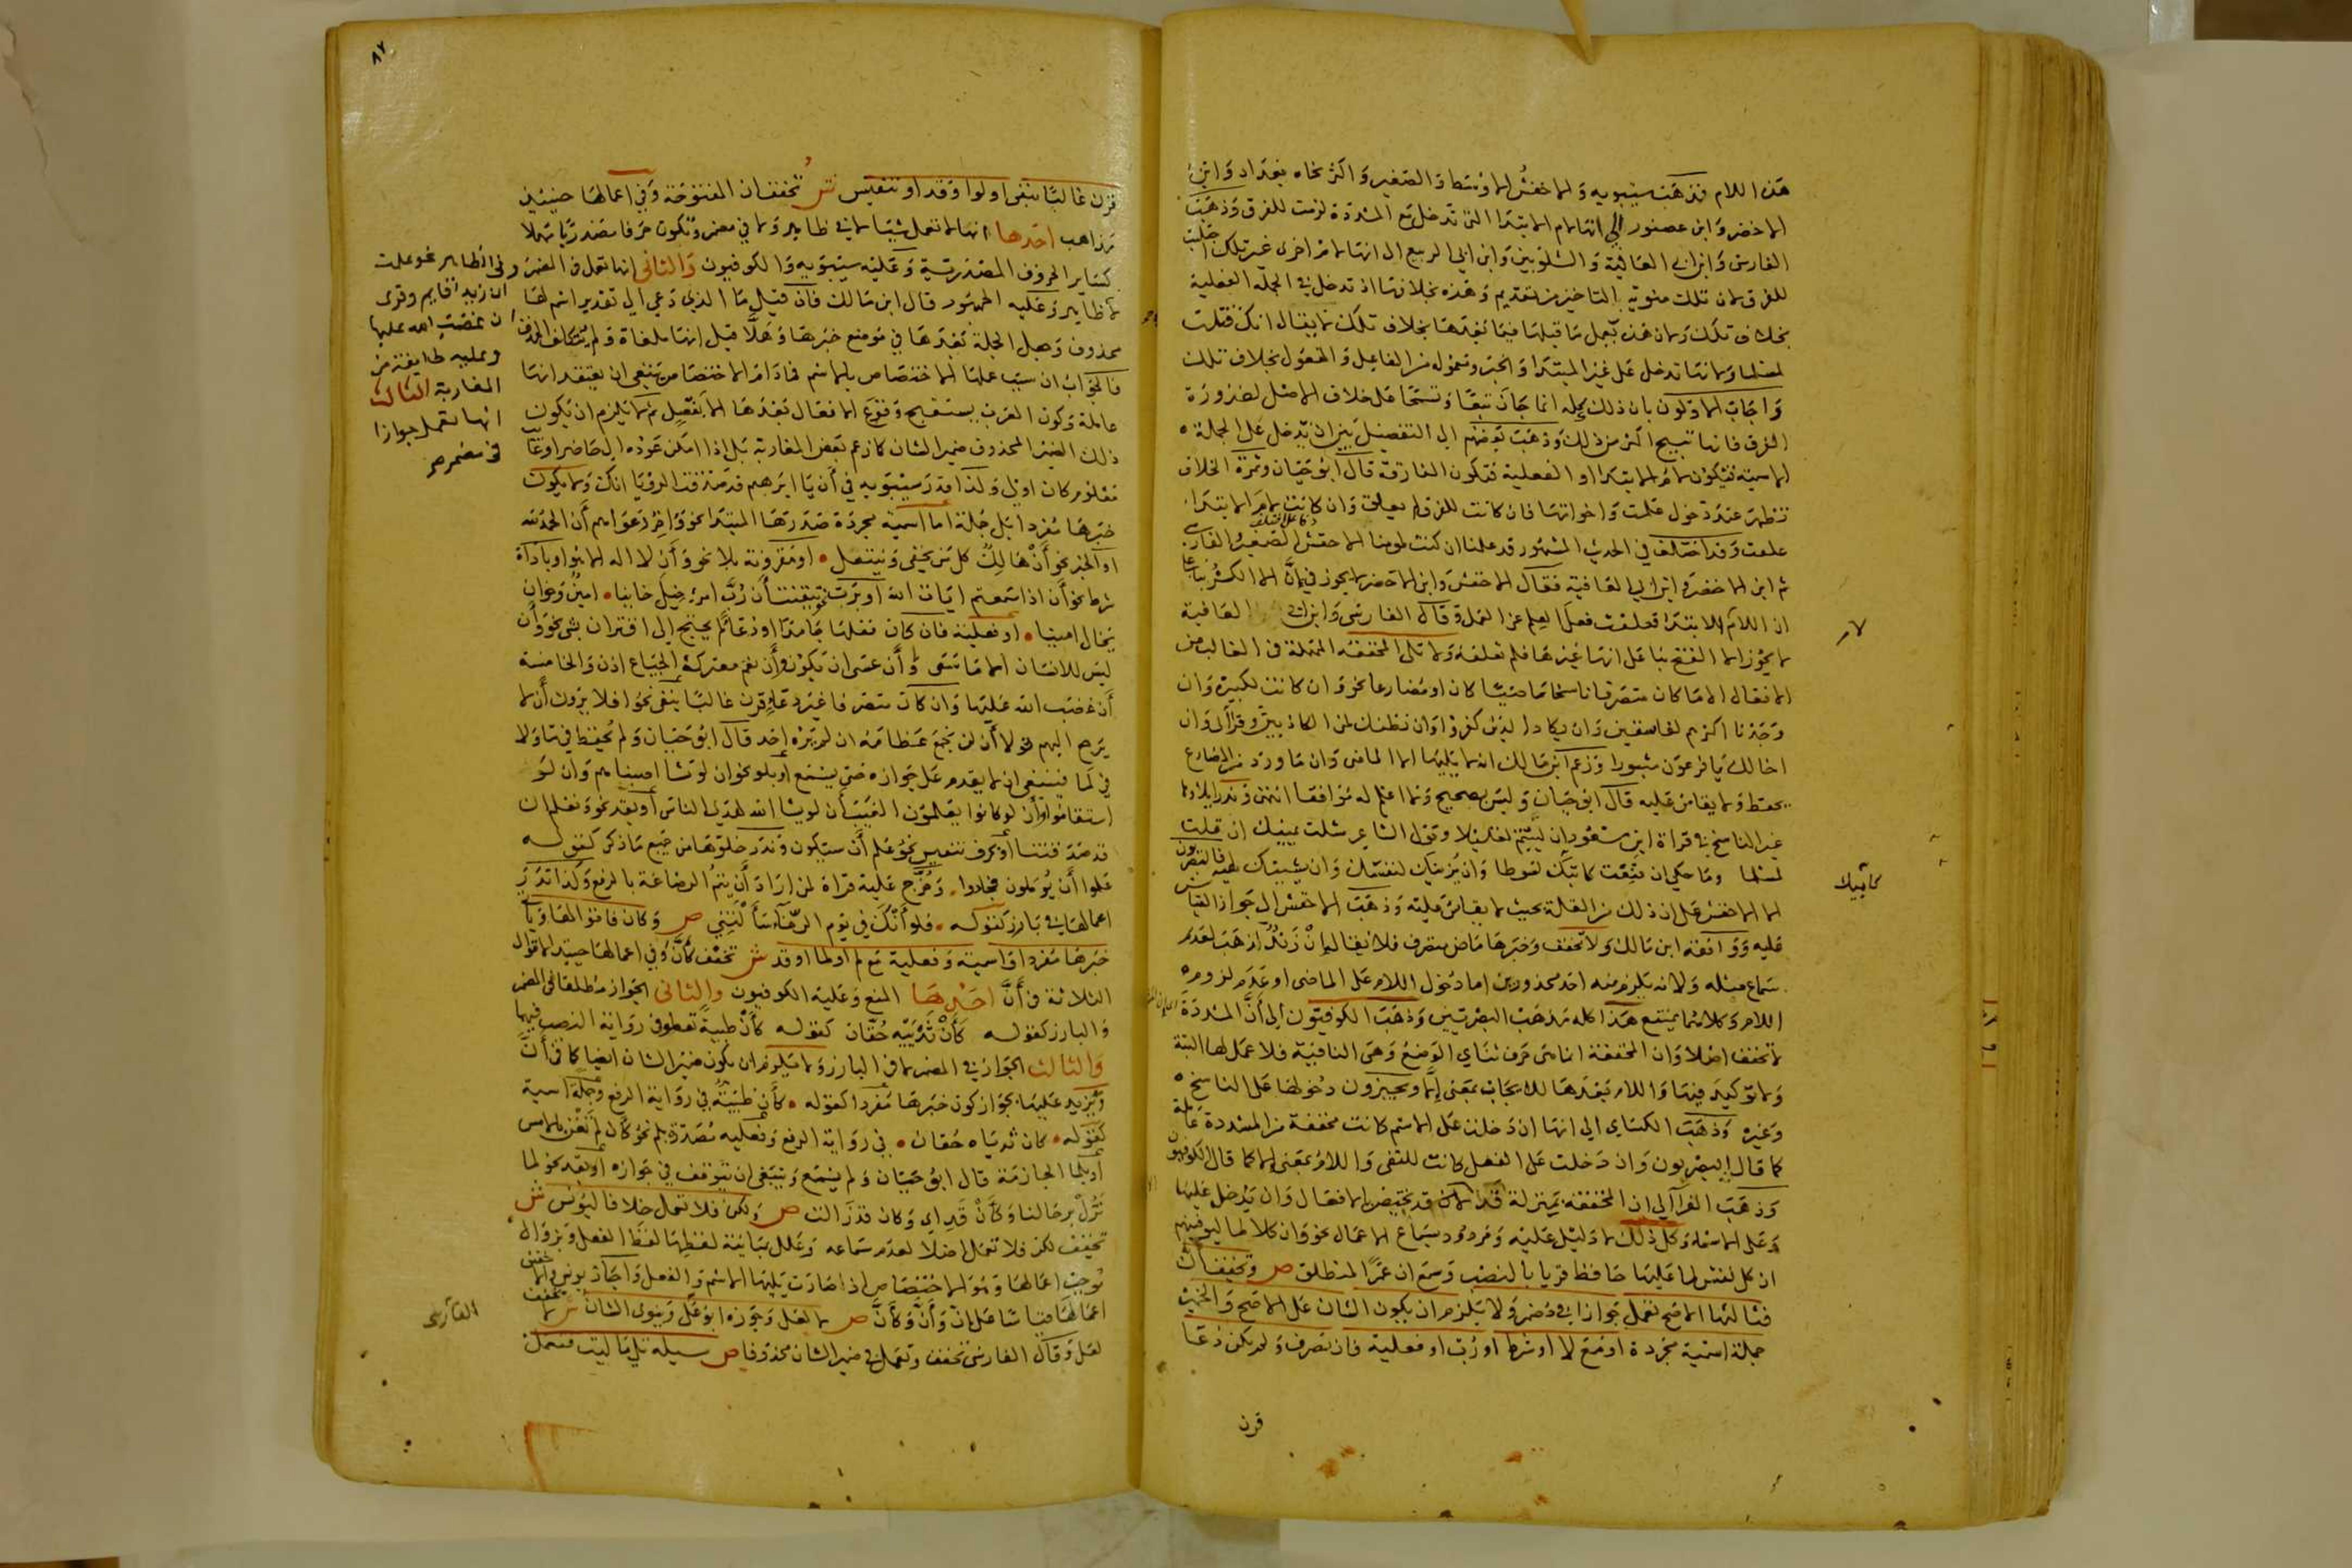 هذه اللام فذهب سيبويه والاخفش الاوسط والصغير واكثر نحاه بغداد وابن
الاخضر وابن عصفور الى انها لام الابتدا التي تدخل مع المشددة لزمت للفرق وذهب
الفارسي وابن ابي العافية والشلوبين وابن ابي الربيع الى انها لام اخرى غير تلك اجتلبت
للفرق لان تلك منوية التاخير من تقديم وهذه بخلافها اذ تدخل في الجملة الفعلية
بخلاف تلك ولان هذه يعمل ما قبلها فيما بعدها بخلاف تلك تقال انك قتلت
لمسلما ولانها تدخل على غير المبتدا والخبر ومعموله من الفاعل والمفعول بخلاف تلك
واجاب الاولون بان ذلك كله انما جاز تبعا وتسمحا على خلاف الاصل لضرورة
الفرق فانها تبيح اكثر من ذلك وذهب بعضهم الى التفصيل بين ان تدخل على الجملة
الاسمية فتكون لام الابتدا او الفعلية فتكون الفارقة قال ابو حيان وثمرة الخلاف
تظهر عند دخول علمت واخواتها فان كانت للفرق لم تعلق وان كانت لام الابتدا
علقت وقد اختلف في الحديث المشهور قد علمنا ان كنت لمومنا الاخفش الصغير والفارسي
ثم ابن الاخضر وابن ابي العافية فقال الاخفش وابن الاخضر لا يجوز في ان الا الكسر بناء على
ان اللام للابتدا فعلقت فعل العلم عن العمل وقال الفارسي وابن ابي العافية
لا يجوز الا الفتح بنا على انها غيرها فلم تعلقه ولا تلي المخففة المهملة في الغالب من
الافعال الا ما كان متصرفا ناسخا ماضيا كان او مضارعا نحو وان كانت لكبيرة وان
وجدنا اكثرهم لفاسقين وان يكاد الذين كفروا وان نظنك لمن الكاذبين
اخالك يا فرعون مثبورا وزعم ابن مالك انه لا يليها الا الماضي وان ما ورد من المضارع
يحفظ ولا يقاس عليه قال ابو حيان وليس بصحيح ولا اعلم له موافقا انتهى وندر ايلاوها
غير الناسخ في قراة ابن مسعود ان لبثتم لقليلا وقول الشاعر شلت يمينك ان قتلت
لمسلما وما حكي ان قنعت كاتبك لسوطا وان يزينك لنفسك وان يشينك لهيه فالبصريون
الا الاخفش على ان ذلك من القلة بحيث لا يقاس عليه وذهب الاخفش الى جواز القياس
عليه ووافقه ابن مالك ولا تخفف وخبرها ماض متصرف فلا يقال ان زيدا لذهب لعدم
سماع مثله ولانه يلزم منه احد محذورين اما دخول اللام على الماضي او عدم لزوم
اللام وكلاهما يمتنع هذا كله مذهب البصريين وذهب الكوفيون الى ان المشددة
لا تخفف اصلا وان المخففة انما هي حرف ثنائي الوضع وهي النافية فلا عمل لها البتة
ولا توكيد فيها واللام بعدها للايجاب بمعنى الا ويجيزون دخولها على الناسخ
وغيره وذهب الكسائي الى انها ان دخلت على الاسم كانت مخففة من المشددة عاملة
كما قال البصريون وان دخلت على الفعل كانت للنفي واللام بمعنى الا كما قال الكوفيون
وذهب الفرا الى ان المخففة بمنزلة قد الا ان قد تختص بالافعال وان تدخل عليها
وعلى الاسما وكل ذلك لا دليل عليه ومردود بسماع الاعمال نحو وان كلا لما ليوفينهم
ان كل نفس لما عليها حافظ قريا بالنصب وسمع ان عمرا لمنطلق ص وتخفف ان
فثالثها الاصح تعمل جوازا في مضمر ولا يلزم ان يكون الشان على الاصح والخبر
جملة اسمية مجردة او مع لا او شرط او رب او فعلية فان تصرف ولم يكن دعا
قرن
كاتبك
٨٢
قرن غالبا بنفي او لو او قد او تنفيس ش تخفف ان المفتوحة وفي اعمالها حينئذ
مذاهب احدها انها لا تعمل شيئا لا في ظاهر ولا في مضمر وتكون حرفا مصدريا مهملا
كسائر الحروف المصدرية وعليه سيبويه والكوفيون والثاني انها تعمل في المضمر
لا ظاهر وعليه الجمهور قال ابن مالك فان قيل ما الذي دعي الى تقدير اسم لها
محذوف وجعل الجملة بعدها في موضع خبرها وهلا قيل انها ملغاة ولم يتكلف الحذف
فالجواب ان سبب عملها الاختصاص بالاسم فما دام الاختصاص ينبغي ان يعتقد انها
عاملة وكون العرب يستقبح وقوع الافعال بعدها الا بفصل ثم لا يلزم ان يكون
ذلك الضمير المحذوف ضمير الشان كما زعم بعض المغاربة بل اذا امكن عوده الى حاضر او غائب
معلوم كان اولى ولذا قدر سيبويه في أن يا ابرهيم قد صدقت الرويا انك ولا يكون
خبرها مفردا بل جملة اما اسمية مجردة صدرها المبتدا نحو واخر دعواهم أن الحمد لله
او الخبر نحو أن هالك كل من يحفى وينتعل او مقرونة بلا نحو وأن لا اله الا هو او باداة
شرط نحو أن اذا سمعتم ايات الله او برب نحو تيقنت أن رب امرئ خيل خائنا امين وخوان
يخال امينا او فعلية فان كان فعلها جامدا او دعا لم يحتج الى اقتران بشي نحو وأن
ليس للانسان الا ما سعى وأن عسى ان يكون وأن نعم معترك الجياع اذن والخامسة
أن غضب الله عليها وان كان متصرفا غير دعا قرن غالبا بنفي نحو افلا يرون أن لا
يرجع اليهم قولا أن لن نجمع عظامه ان لم يره احد قال ابو حيان ولم يحفظ في ما ولا
في لما فينبغي ان لا يقدم على جوازه حتى يسمع أو بلو نحو ان لو نشا اصبناهم وان لو
استقاموا وأن لو كانوا يعلمون الغيب أن لو يشا الله لهدى الناس أو بقد نحو ونعلم ان
قد صدقتنا أو بحرف تنفيس نحو علم أن سيكون وندر خلوها من جميع ما ذكر كقوله
علموا أن يؤملون فجادوا وخرج عليه قراة لمن اراد أن يتم الرضاعة بالرفع وكذا ندر
اعمالها في بارز كقوله فلو أنك في يوم الرخاء سألتني ص وكان فاقوالها ويا
خبرها مفردا واسمية وفعلية مع لم او لما او قد ش تخفف كأن وفي اعمالها حينئذ الاقوال
الثلاثة في أن احدها المنع وعليه الكوفيون والثاني الجواز مطلقا في المضمر
والبارز كقوله كأن ثدييه حقان كقوله كأن ظبية تعطو في رواية النصب فيهما
والثالث الجواز في المضمر لا في البارز ولا يلزم ان يكون ضمير الشان ايضا كما في أن
وتزيد عليها بجواز كون خبرها مفردا كقوله كأن ظبية في رواية الرفع وجملة اسمية
كقوله كان ثدياه حقان في رواية الرفع وفعلية مصدرة بلم نحو كأن لم تغن بالامس
أو بلما الجازمة قال ابو حيان ولم يسمع وينبغي ان يتوقف في جوازه او بقد نحو لما
تزل برحالنا وكأن قد اي وكان قد زالت ص ولكن فلا تعمل خلافا ليونس ش
تخفف لكن فلا تعمل اصلا لعدم سماعه وعلل بمباينة لفظها لفظ الفعل وبزوال
موجب اعمالها وهو الاختصاص اذ صارت يليها الاسم والفعل واجاز يونس والاخفش
اعمالها قياسا على ان وأن وكأن ص لا لعل وجوزه ابو علي وينوى الشان ش لا تخفف
لعل وقال الفارسي تخفف وتعمل في ضمير الشان محذوفا ص مسيلة تلي ما ليت فتعمل
وفي الظاهر نحو علمت
ان زيدا قايم وقرى
أن غضب الله عليها
وعليه طايفة من
المغاربة الثالث
انها تعمل جوازا
في مضمر
الفارسي